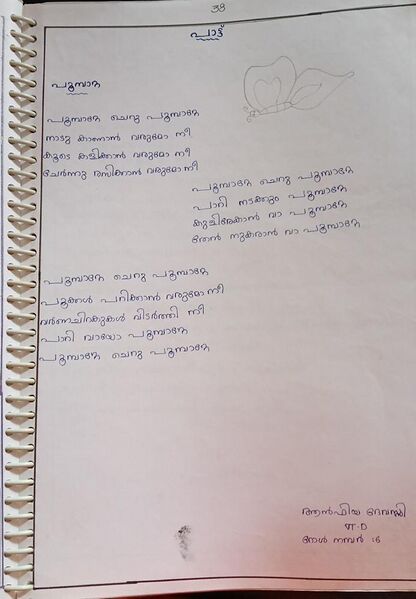 38
പാട്ട്
പൂമ്പാറ്റ
പൂമ്പാറ്റേ ചെറു പൂമ്പാറ്റേ
നാടു കാണാൻ വരുമോ നീ
കൂടെ കളിക്കാൻ വരുമോ നീ
ചേർന്നു രസിക്കാൻ വരുമോ നീ
പൂമ്പാറ്റേ ചെറു പൂമ്പാറ്റേ
പാറി നടക്കും പൂമ്പാറ്റേ
വാ പൂമ്പാറ്റേ
തേൻ നുകരാൻ വാ പൂമ്പാറ്റേ
പൂമ്പാറ്റേ ചെറു പൂമ്പാറ്റേ
പൂക്കൾ പറിക്കാൻ വരുമോ നീ
വർണചിറകുകൾ വിടർത്തി നീ
പാറി വായോ പൂമ്പാറ്റേ
പൂമ്പാറ്റേ ചെറു പൂമ്പാറ്റേ
ആൻഫിയ ദേവസ്സി
VI-D
റോൾ നമ്പർ :6